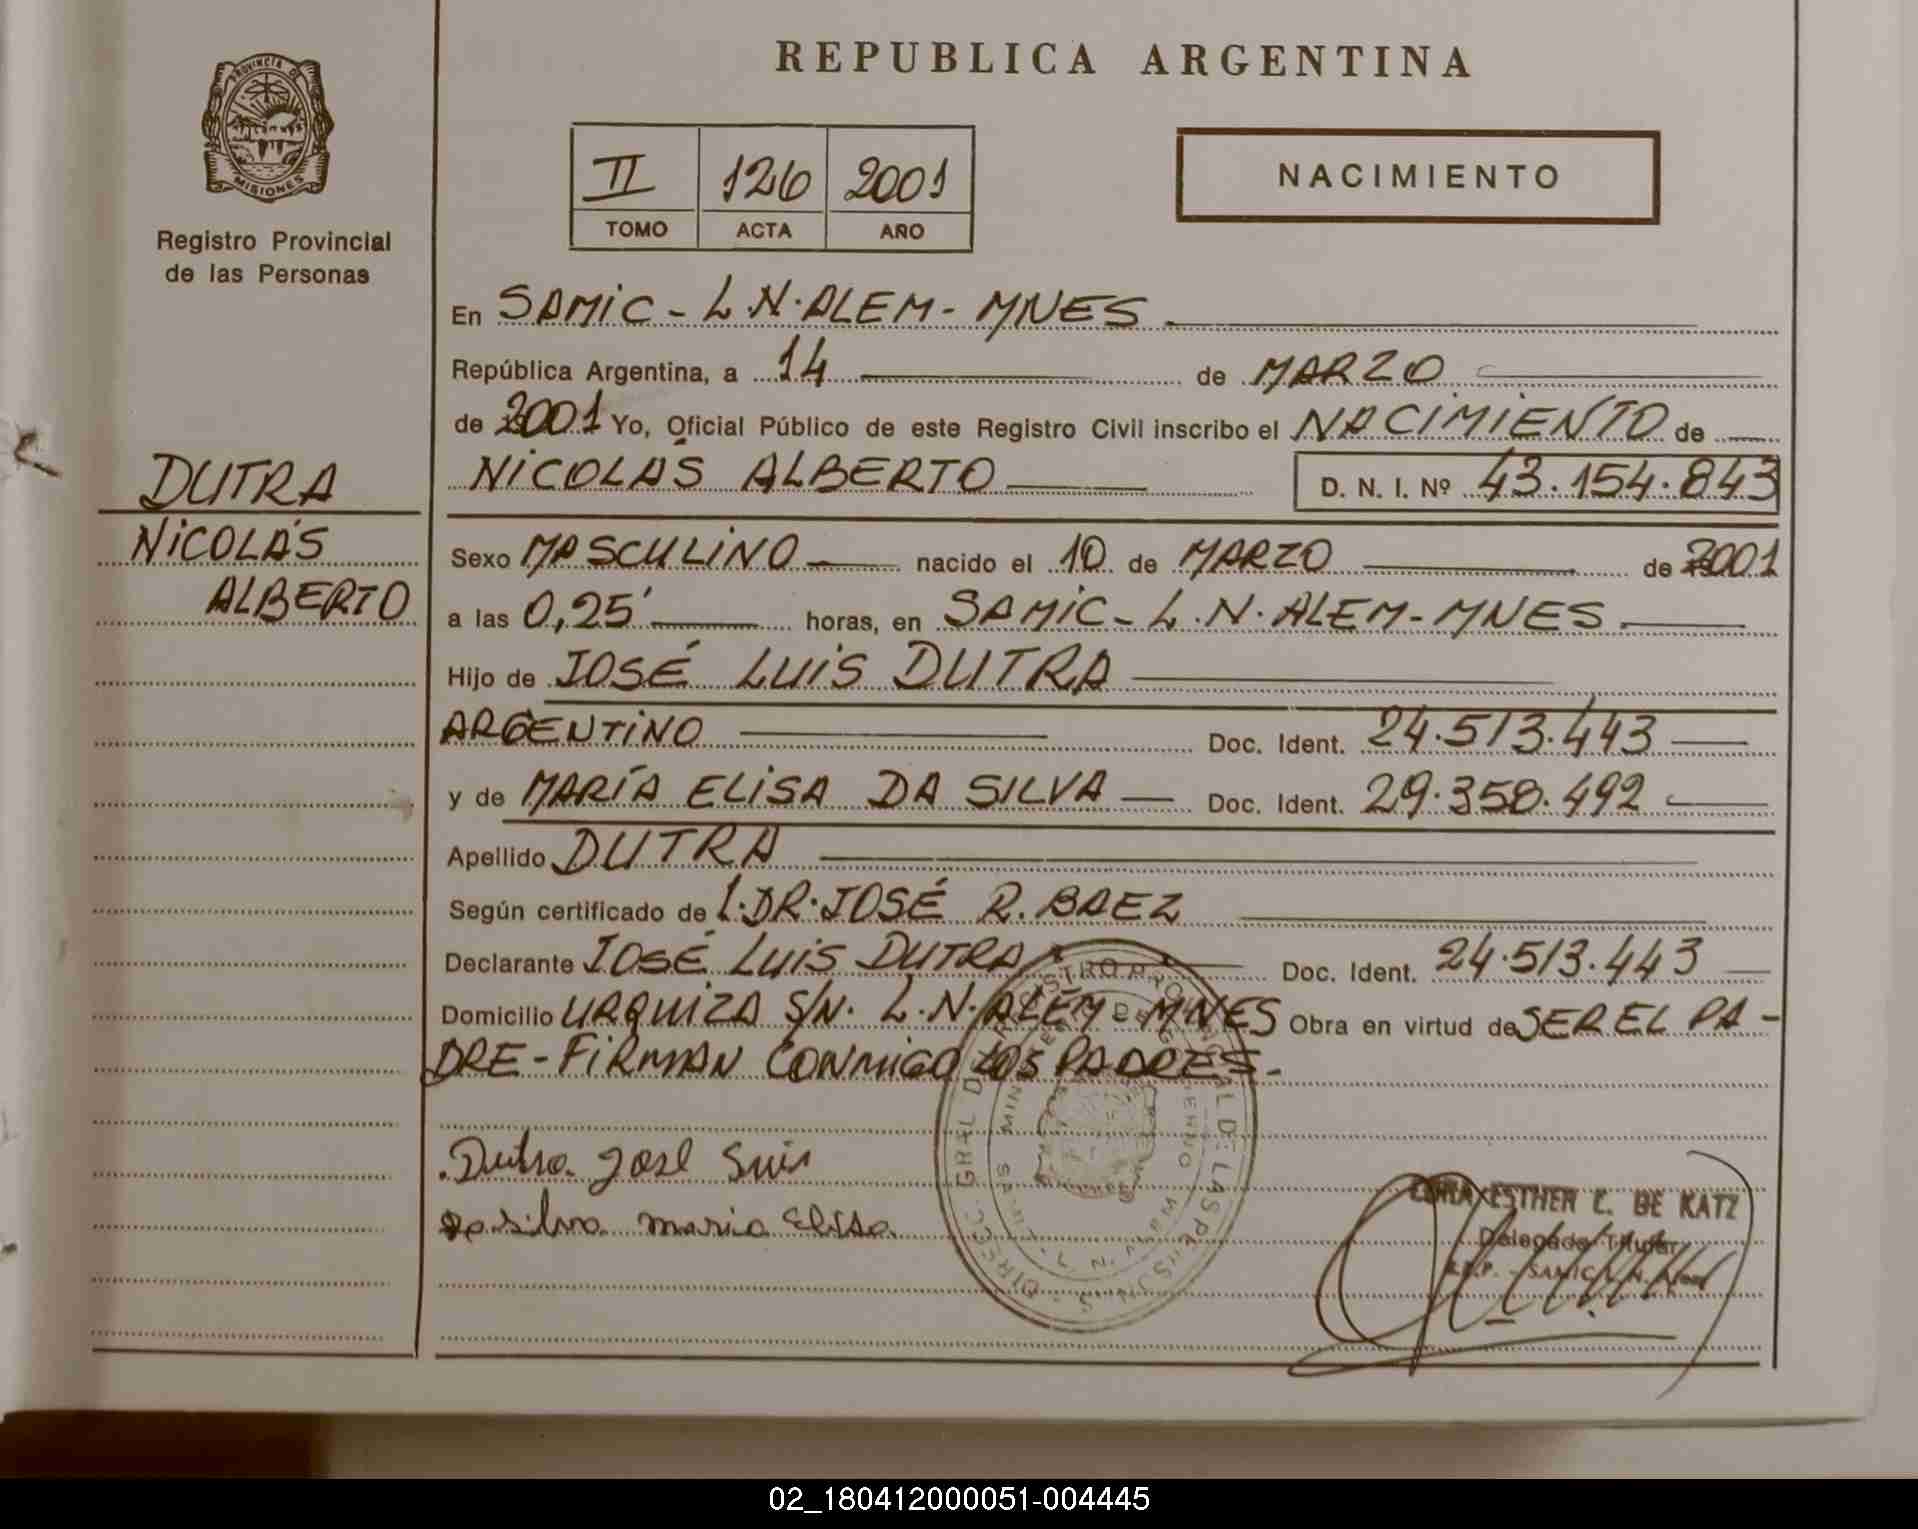 REPUBLICA ARGENTINA
PROVINCIA DE
MISIONES
Registro Provincial
de las Personas
II 126 2001
TOMO ACTA AÑO
NACIMIENTO
En SAMIC - L.N. ALEM - MNES
República Argentina, a 14 de MARZO
de 2001 Yo, Oficial Público de este Registro Civil inscribo el NACIMIENTO de
NICOLÁS ALBERTO D. N. I. Nº 43.154.843
DUTRA
NICOLÁS
ALBERTO
Sexo MASCULINO nacido el 10 de MARZO de 2001
a las 0,25' horas, en SAMIC - L.N. ALEM - MNES
Hijo de JOSÉ LUIS DUTRA
ARGENTINO Doc. Ident. 24.513.443
y de MARÍA ELISA DA SILVA Doc. Ident. 29.358.492
Apellido DUTRA
Según certificado de DR. JOSÉ R. BAEZ
Declarante JOSÉ LUIS DUTRA Doc. Ident. 24.513.443
Domicilio URQUIZA S/N. L.N. ALEM - MNES Obra en virtud de SER EL PA-
DRE - FIRMAN CONMIGO LOS PADRES.-
Dutra José Luis
Da silva maria Elisa
ESTHER C. DE KATZ
Delegada Titular
R.P.P. - SAMIC L.N. Alem
02_180412000051-004445